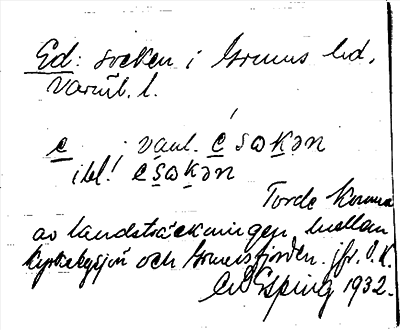 Ed: socken i Grums hd,
Värml. l.
e vanl. é sωkən
ibl! e sωkən
Torde komma
av landsträckningen mellan
Kyrkebysjön och Grumsfjorden. jfr. O.K.
C. Esping 1932.